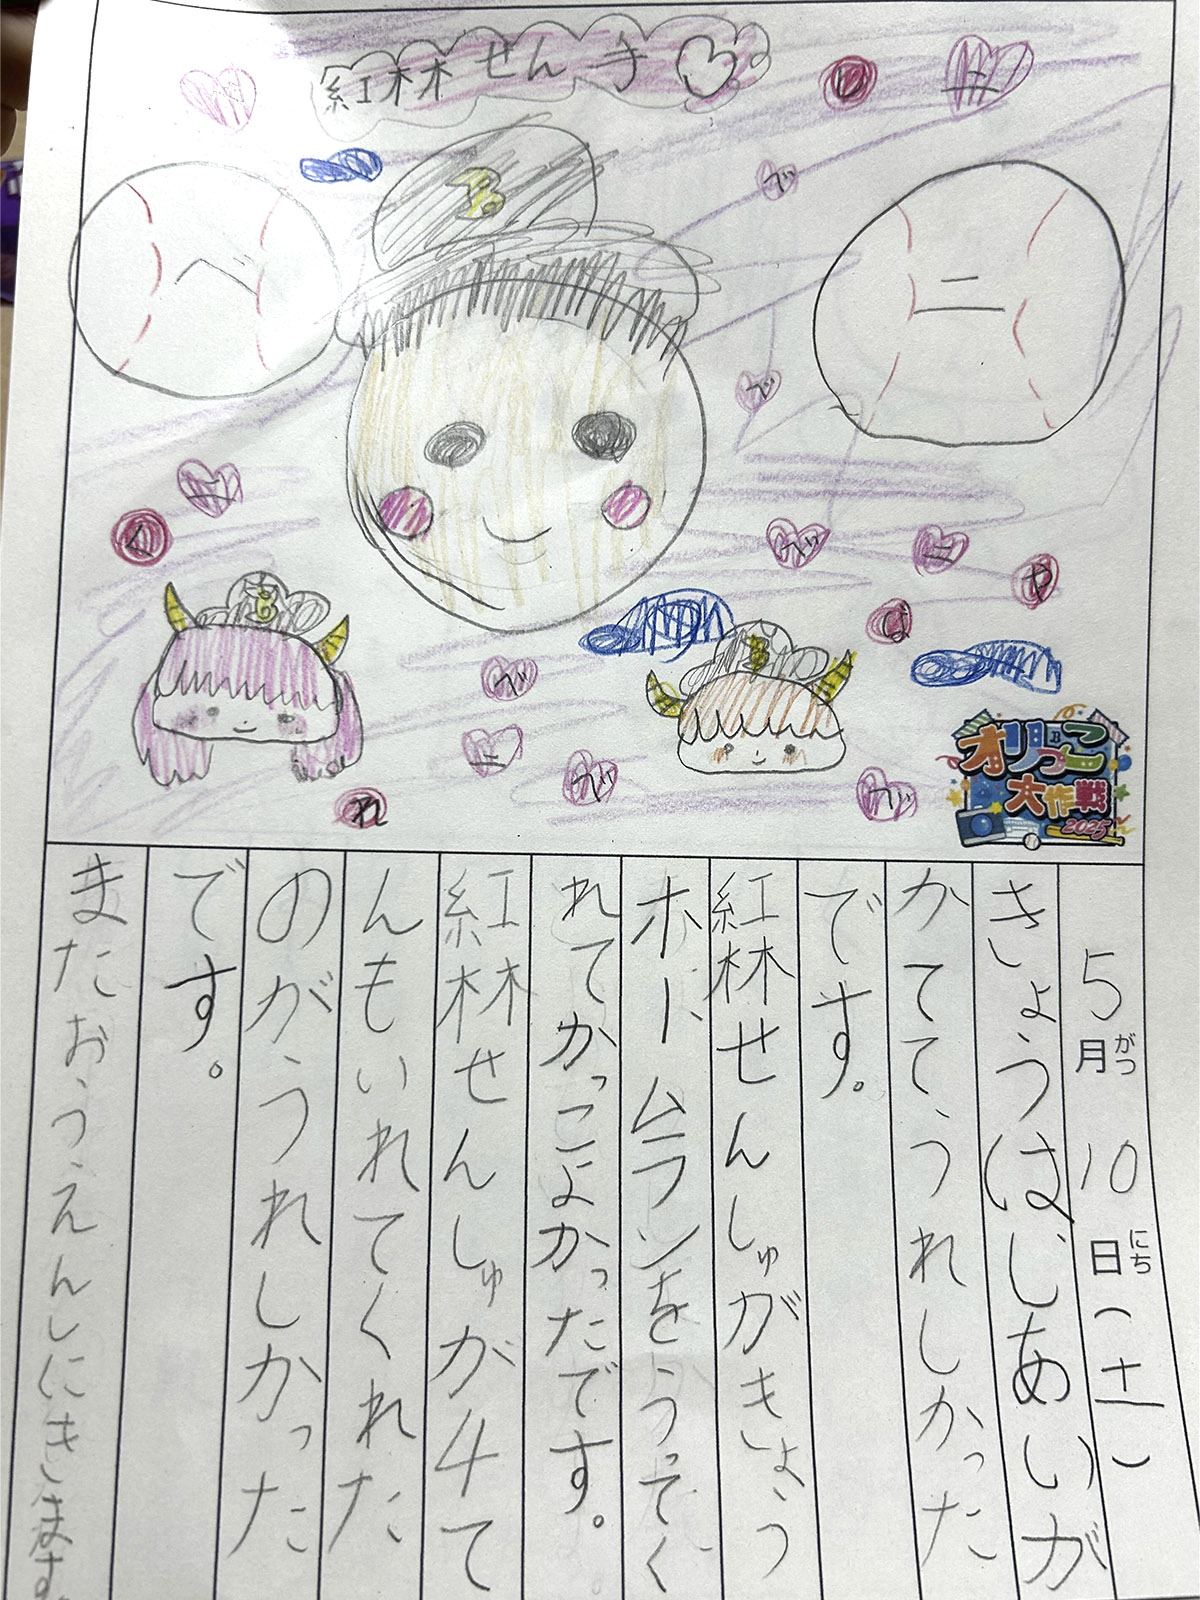 紅林せん手
B
ニ
ベ
へ
ニ
ベ
ニ
く
ベ
ニ
や
よ
B
B
ベ
ニ
ベ
ベ
れ
オリっこ
大作戦
2025
5月がつ 10日にち(土)
きょうはじあいが
かてて、うれしかった
です。
紅林せんしゅがきょう
ホームランをうってく
れてかっこよかったです。
紅林せんしゅが4て
んもいれてくれた
のがうれしかった
です。
またおうえんしにきます。